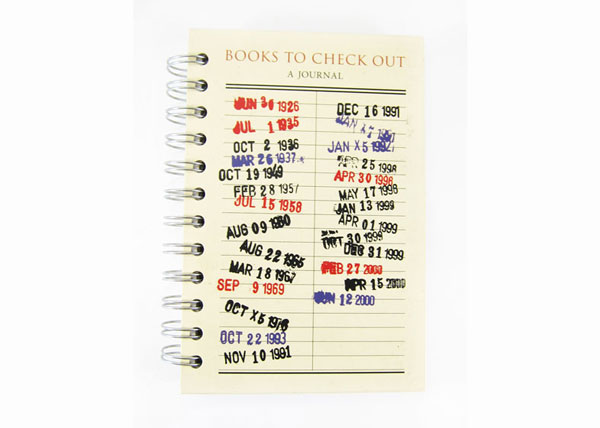 BOOKS TO CHECK OUT
A JOURNAL
JUN 30 1926
JUL 1 1935
OCT 2 1936
MAR 26 1937
OCT 19 1949
FEB 28 1957
JUL 15 1958
AUG 09 1960
AUG 22 1965
MAR 18 1967
SEP 9 1969
OCT X5 1976
OCT 22 1993
NOV 10 1991
DEC 16 1991
JAN 17
JAN X5 1992
APR 25 1998
APR 30 1998
MAY 17 1998
JAN 13 1999
APR 01 1999
30 1999
DEC 31 1999
FEB 27 2000
APR 15 2000
JUN 12 2000